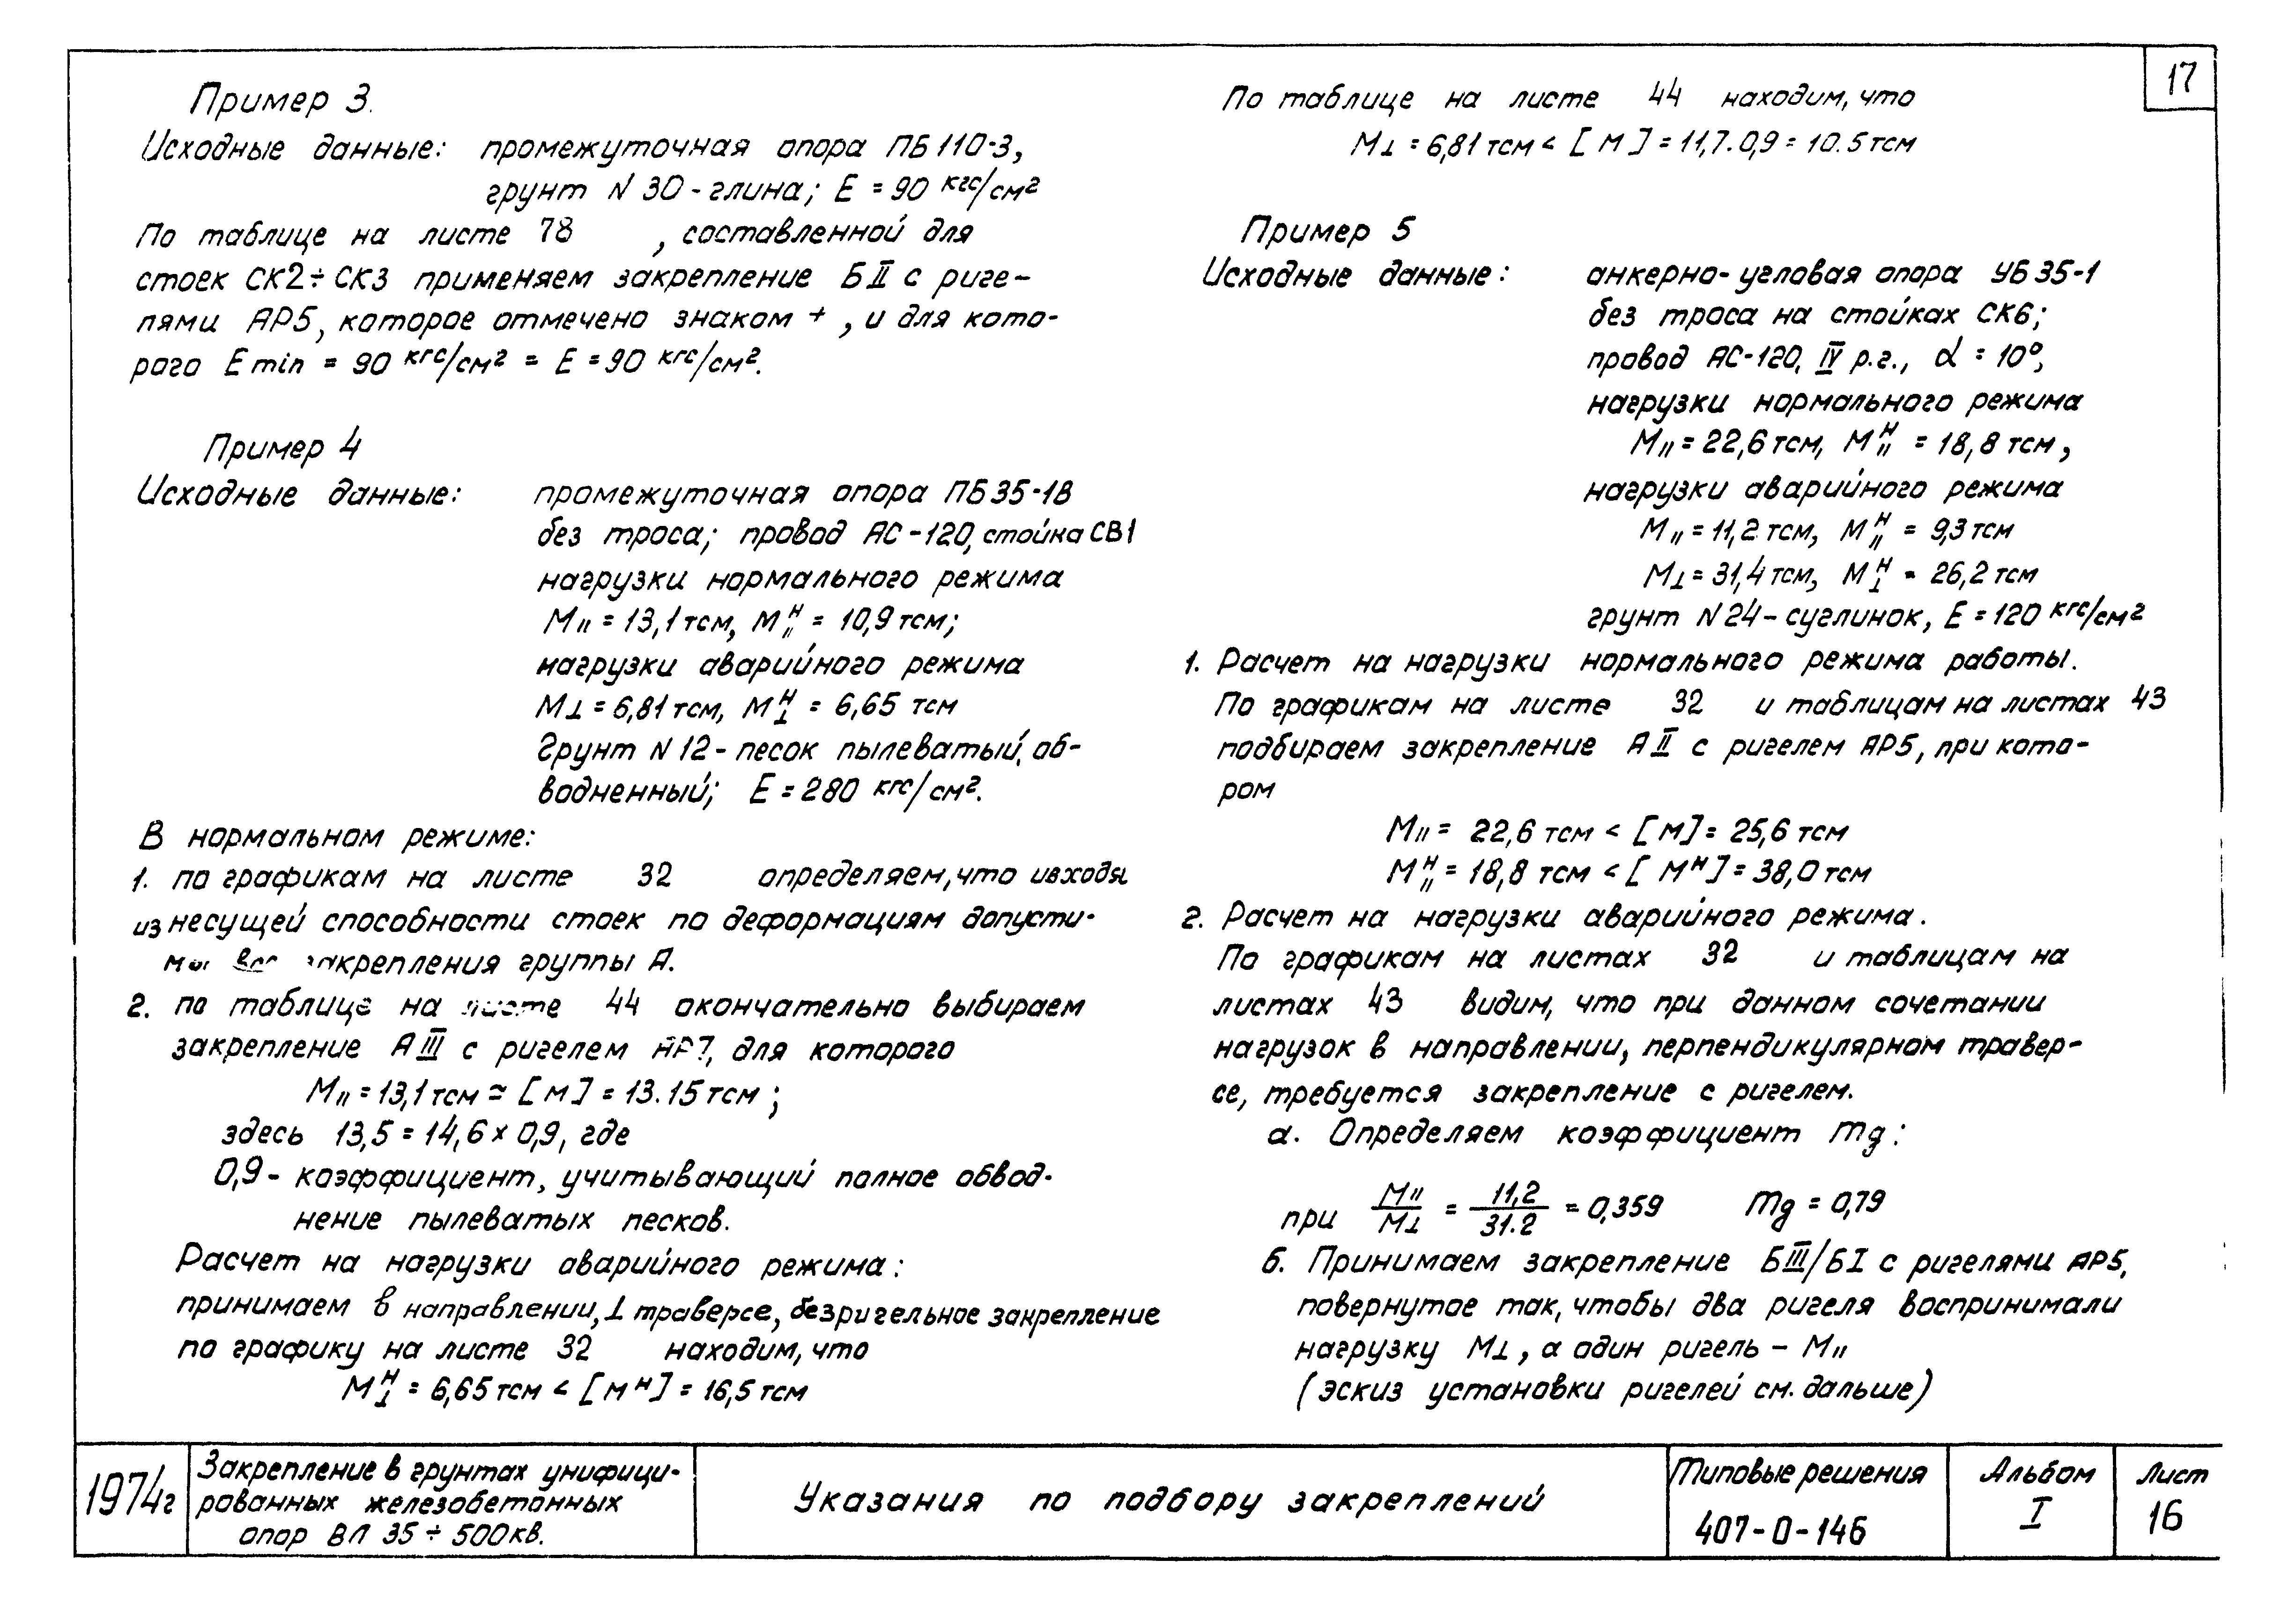 17
Пример 3.
Исходные данные: промежуточная опора ПБ 110-3,
грунт N 30 - глина; E = 90 кгс/см²
По таблице на листе 78 , составленной для
стоек СК2÷СК3 применяем закрепление Б II с риге-
лями АР5, которое отмечено знаком + , и для кото-
рого E min = 90 кгс/см² = E = 90 кгс/см².
Пример 4
Исходные данные: промежуточная опора ПБ 35-1В
без троса; провод АС-120, стойка СВ1
нагрузки нормального режима
M∥ = 13,1 тсм, M∥ᴴ = 10,9 тсм;
нагрузки аварийного режима
M⊥ = 6,81 тсм, M⊥ᴴ = 6,65 тсм
Грунт N 12 - песок пылеватый, об-
водненный; E = 280 кгс/см².
В нормальном режиме:
1. по графикам на листе 32 определяем, что исходя
из несущей способности стоек по деформациям допусти-
закрепления группы А.
2. по таблице на листе 44 окончательно выбираем
закрепление А III с ригелем АР7, для которого
M∥ = 13,1 тсм ≃ [M] = 13.15 тсм ;
здесь 13,5 = 14,6 × 0,9, где
0,9 - коэффициент, учитывающий полное обвод-
нение пылеватых песков.
Расчет на нагрузки аварийного режима:
принимаем в направлении, ⊥ траверсе, безригельное закрепление
по графику на листе 32 находим, что
M⊥ᴴ = 6,65 тсм < [Mᴴ] = 16,5 тсм
По таблице на листе 44 находим, что
M⊥ = 6,81 тсм < [M] = 11,7·0,9 = 10.5 тсм
Пример 5
Исходные данные: анкерно-угловая опора УБ 35-1
без троса на стойках СК6;
провод АС-120, IV р.г., α = 10°,
нагрузки нормального режима
M∥ = 22,6 тсм, M∥ᴴ = 18,8 тсм,
нагрузки аварийного режима
M∥ = 11,2 тсм, M∥ᴴ = 9,3 тсм
M⊥ = 31,4 тсм, M⊥ᴴ = 26,2 тсм
грунт N 24 - суглинок, E = 120 кгс/см²
1. Расчет на нагрузки нормального режима работы.
По графикам на листе 32 и таблицам на листах 43
подбираем закрепление А II с ригелем АР5, при кото-
ром
M∥ = 22,6 тсм < [M] = 25,6 тсм
M∥ᴴ = 18,8 тсм < [Mᴴ] = 38,0 тсм
2. Расчет на нагрузки аварийного режима.
По графикам на листах 32 и таблицам на
листах 43 видим, что при данном сочетании
нагрузок в направлении, перпендикулярном травер-
се, требуется закрепление с ригелем.
а. Определяем коэффициент mg:
при M∥/M⊥ = 11,2/31.2 = 0,359 mg = 0,79
б. Принимаем закрепление Б III/Б I с ригелями АР5,
повернутое так, чтобы два ригеля воспринимали
нагрузку M⊥, а один ригель - M∥
(эскиз установки ригелей см. дальше)
1974г
Закрепление в грунтах унифици-
рованных железобетонных
опор ВЛ 35 ÷ 500 кв.
Указания по подбору закреплений
Типовые решения
407-0-146
Альбом
I
Лист
16